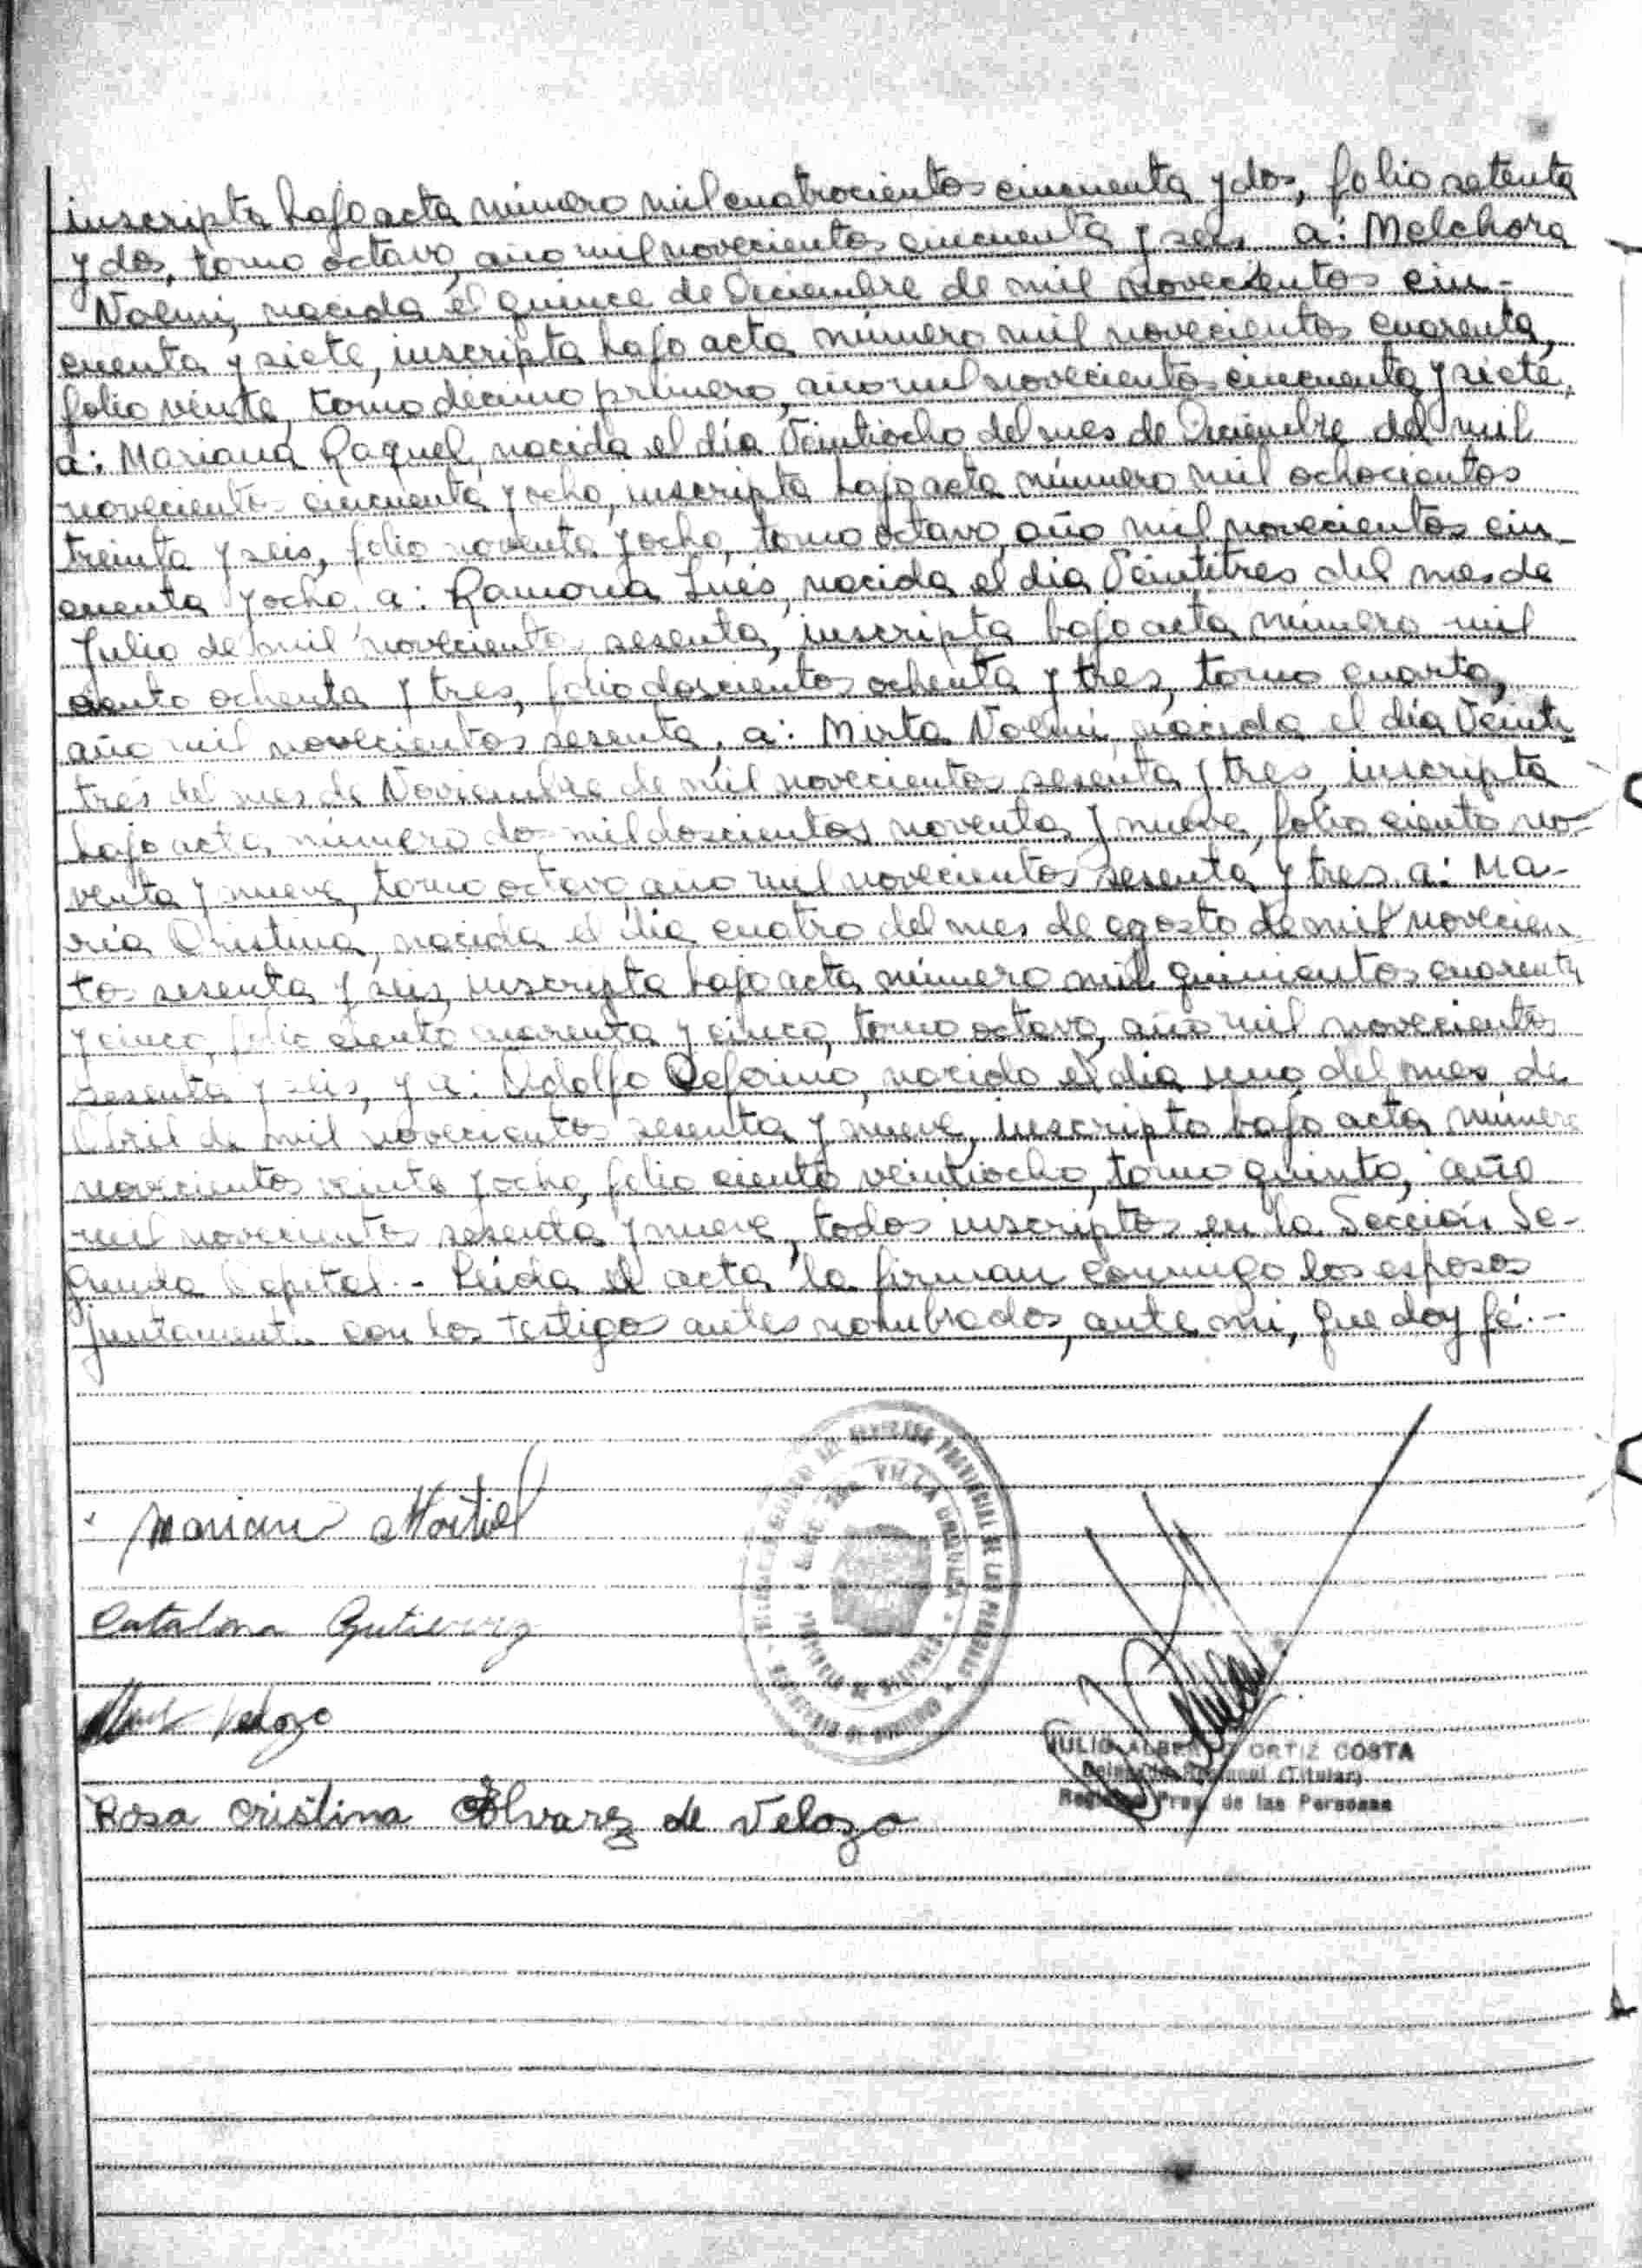 inscripta bajo acta número mil cuatrocientos cincuenta y dos, folio setenta
y dos, tomo octavo, año mil novecientos cincuenta y seis, a: Melchora
Noemí, nacida el quince de Diciembre de mil novecientos cin-
cuenta y siete, inscripta bajo acta número mil novecientos cuarenta,
folio veinte, tomo décimo primero, año mil novecientos cincuenta y siete,
a: Mariana Raquel, nacida el día Veintiocho del mes de Diciembre del mil
novecientos cincuenta y ocho, inscripta bajo acta número mil ochocientos
treinta y seis, folio noventa y ocho, tomo octavo, año mil novecientos cin-
cuenta y ocho, a: Ramona Inés, nacida el día Veintitres del mes de
Julio de mil novecientos sesenta, inscripta bajo acta número mil
ciento ochenta y tres, folio doscientos ochenta y tres, tomo cuarto,
año mil novecientos sesenta, a: Mirta Noemí, nacida el día Veinti
trés del mes de Noviembre de mil novecientos sesenta y tres, inscripta
bajo acta número dos mil doscientos noventa y nueve, folio ciento no-
venta y nueve, tomo octavo, año mil novecientos sesenta y tres, a: Ma-
ría Cristina, nacida el día cuatro del mes de agosto de mil novecien
tos sesenta y seis, inscripta bajo acta número mil quinientos cuarenta
y cinco, folio ciento cuarenta y cinco, tomo octavo, año mil novecientos
sesenta y seis, y a: Adolfo Ceferino, nacido el día uno del mes de
Abril de mil novecientos sesenta y nueve, inscripto bajo acta número
novecientos veinte y ocho, folio ciento veintiocho, tomo quinto, año
mil novecientos sesenta y nueve, todos inscriptos en la Sección Se-
gunda Capital.- Leída el acta la firman conmigo los esposos
juntamente con los testigos antes nombrados, ante mi, que doy fé.-
Mariano Montiel
VILLA URQUIZA
Catalina Gutierrez
Velozo
JULIO ALBERTO ORTIZ COSTA
Delegado Regional (Titular)
Registro Prov. de las Personas
Rosa Cristina Alvarez de Velozo